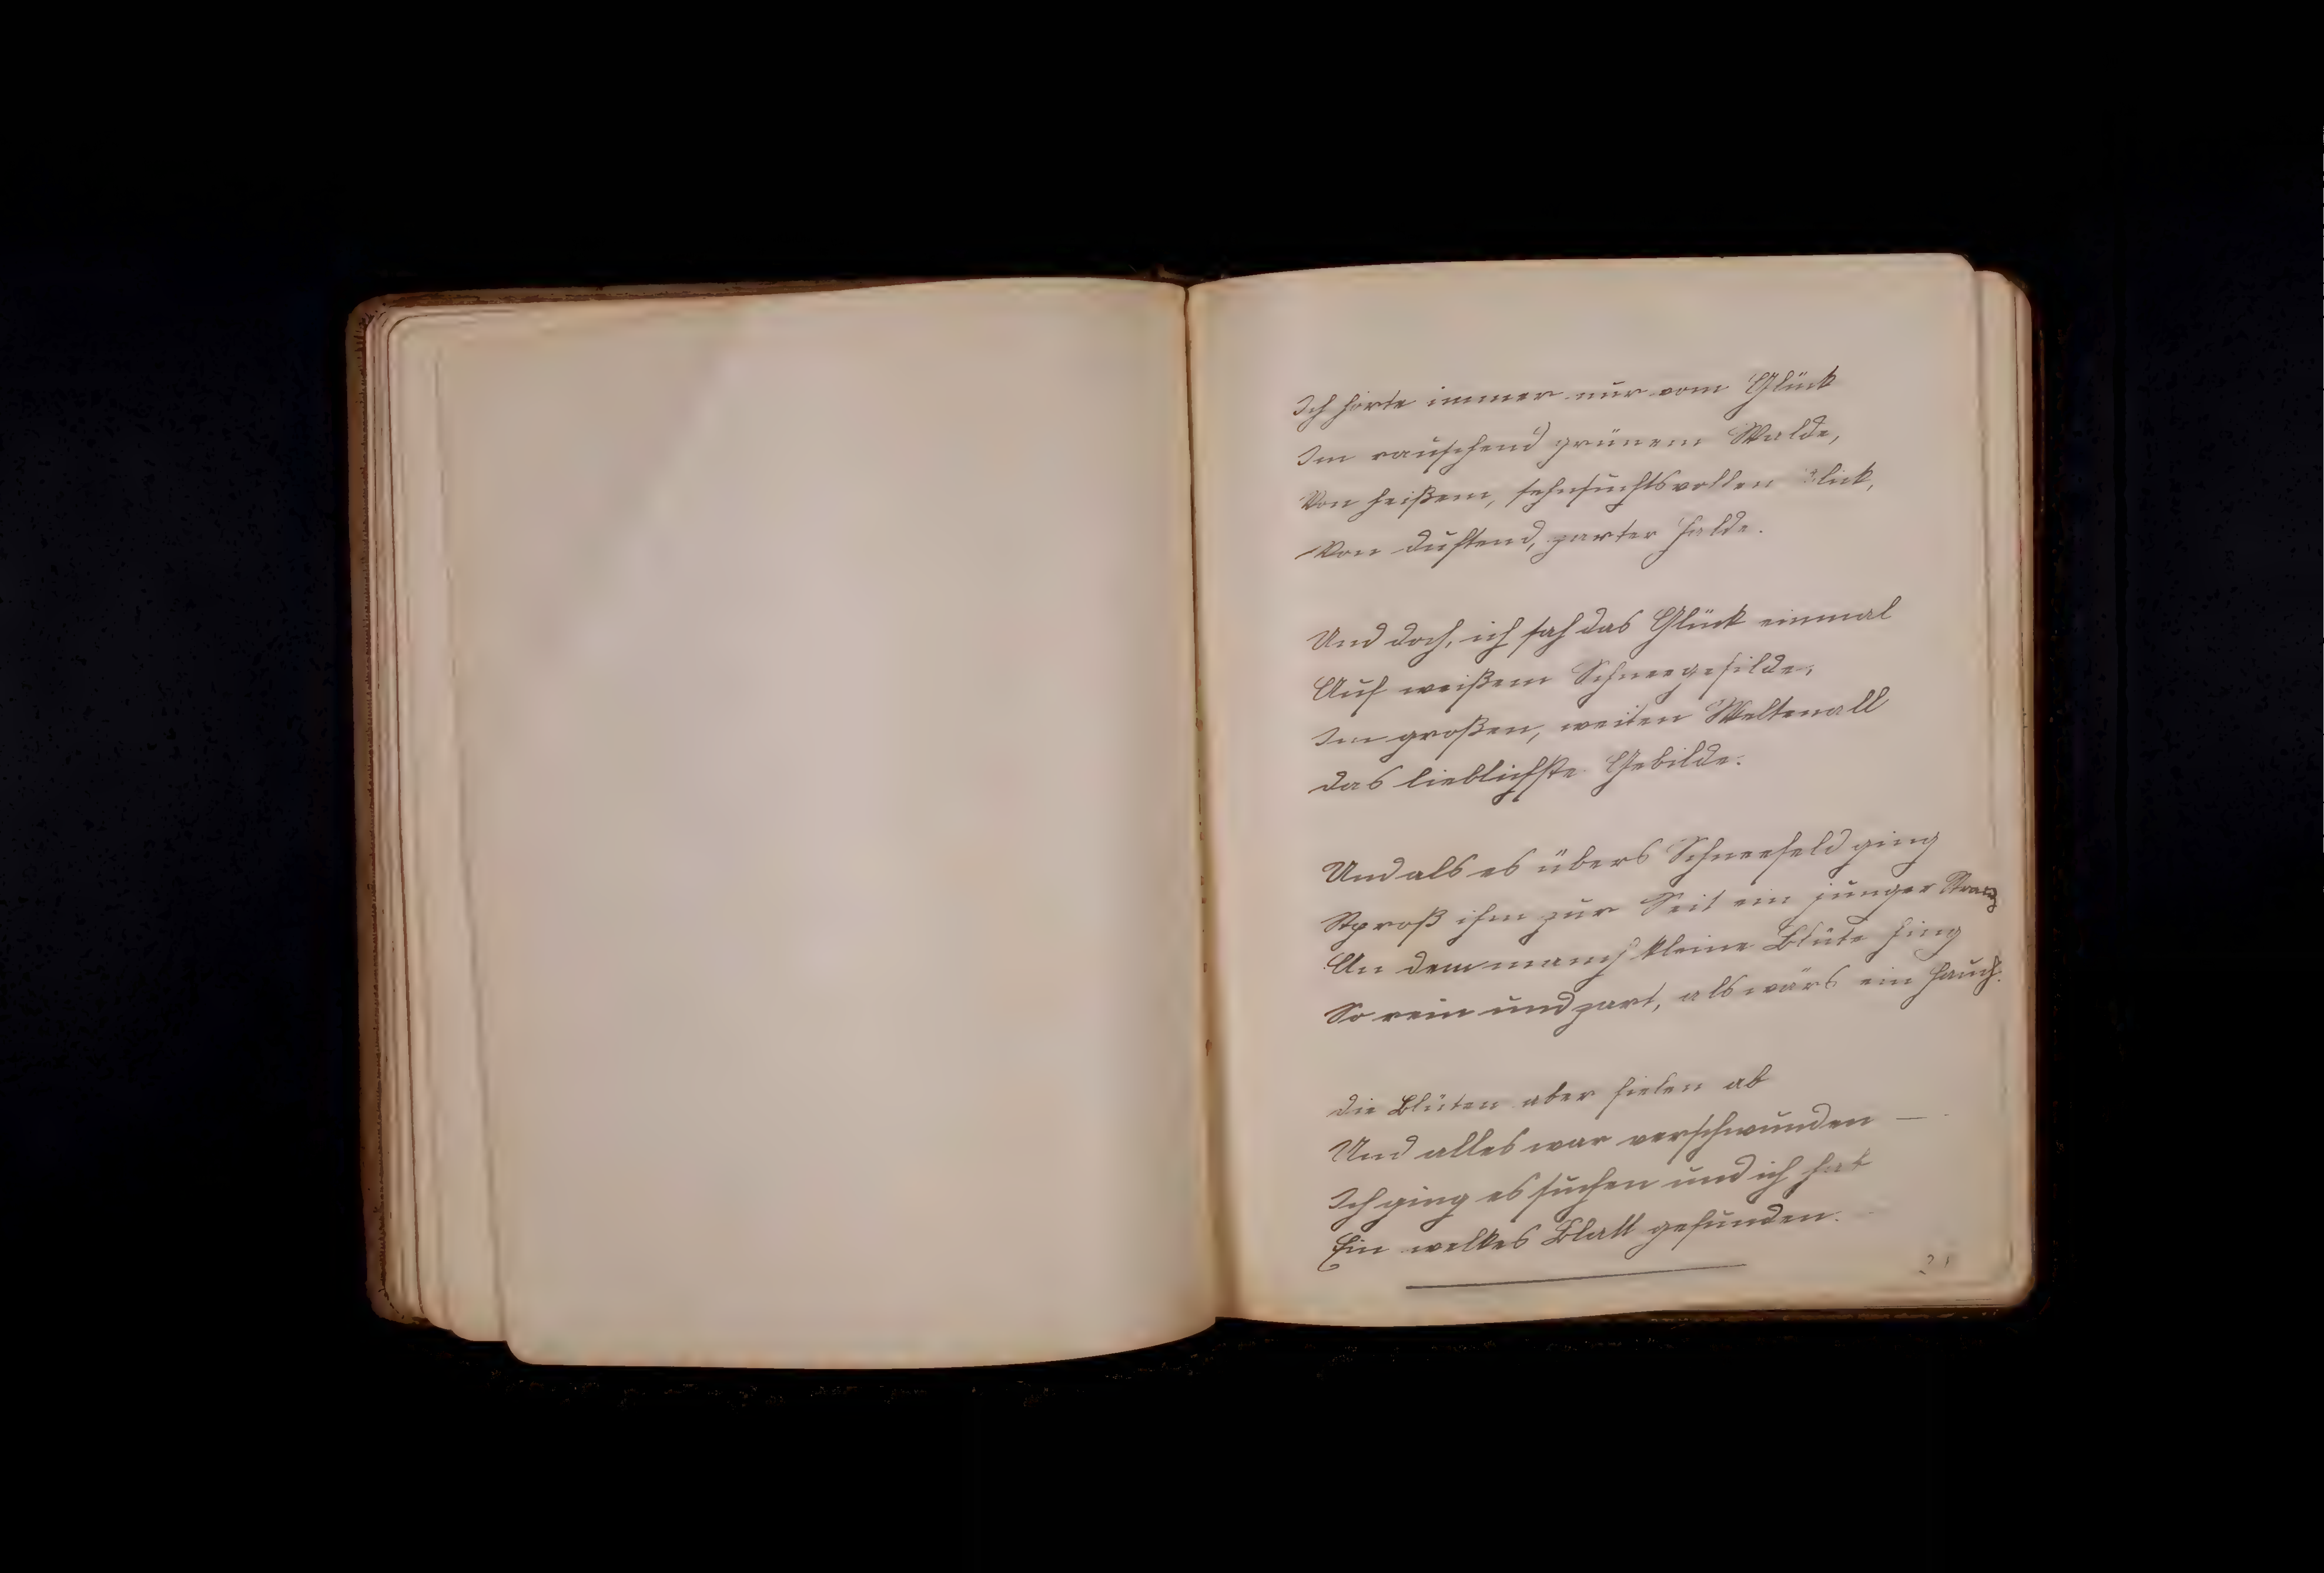 Ich hörte immer nur vom Glück
Im rauschend grünem Walde,
Von heißem, sehnsuchtsvollen Blick,
Von duftend, zarter Halde.
Und doch, ich sah das Glück einmal
Auf weißem Schneegefilde,
Im großen, weiten Weltenall
das lieblichste Gebilde.
Und als es übers Schneefeld ging
Sproß ihm zur Seit ein junger
An dem manch kleine Blüte hing
So rein und zart, als wärs ein Hauch.
die Blüten aber fielen ab
Und alles war verschwunden —
Ich ging es suchen und ich hab
Ein welkes Blatt gefunden.